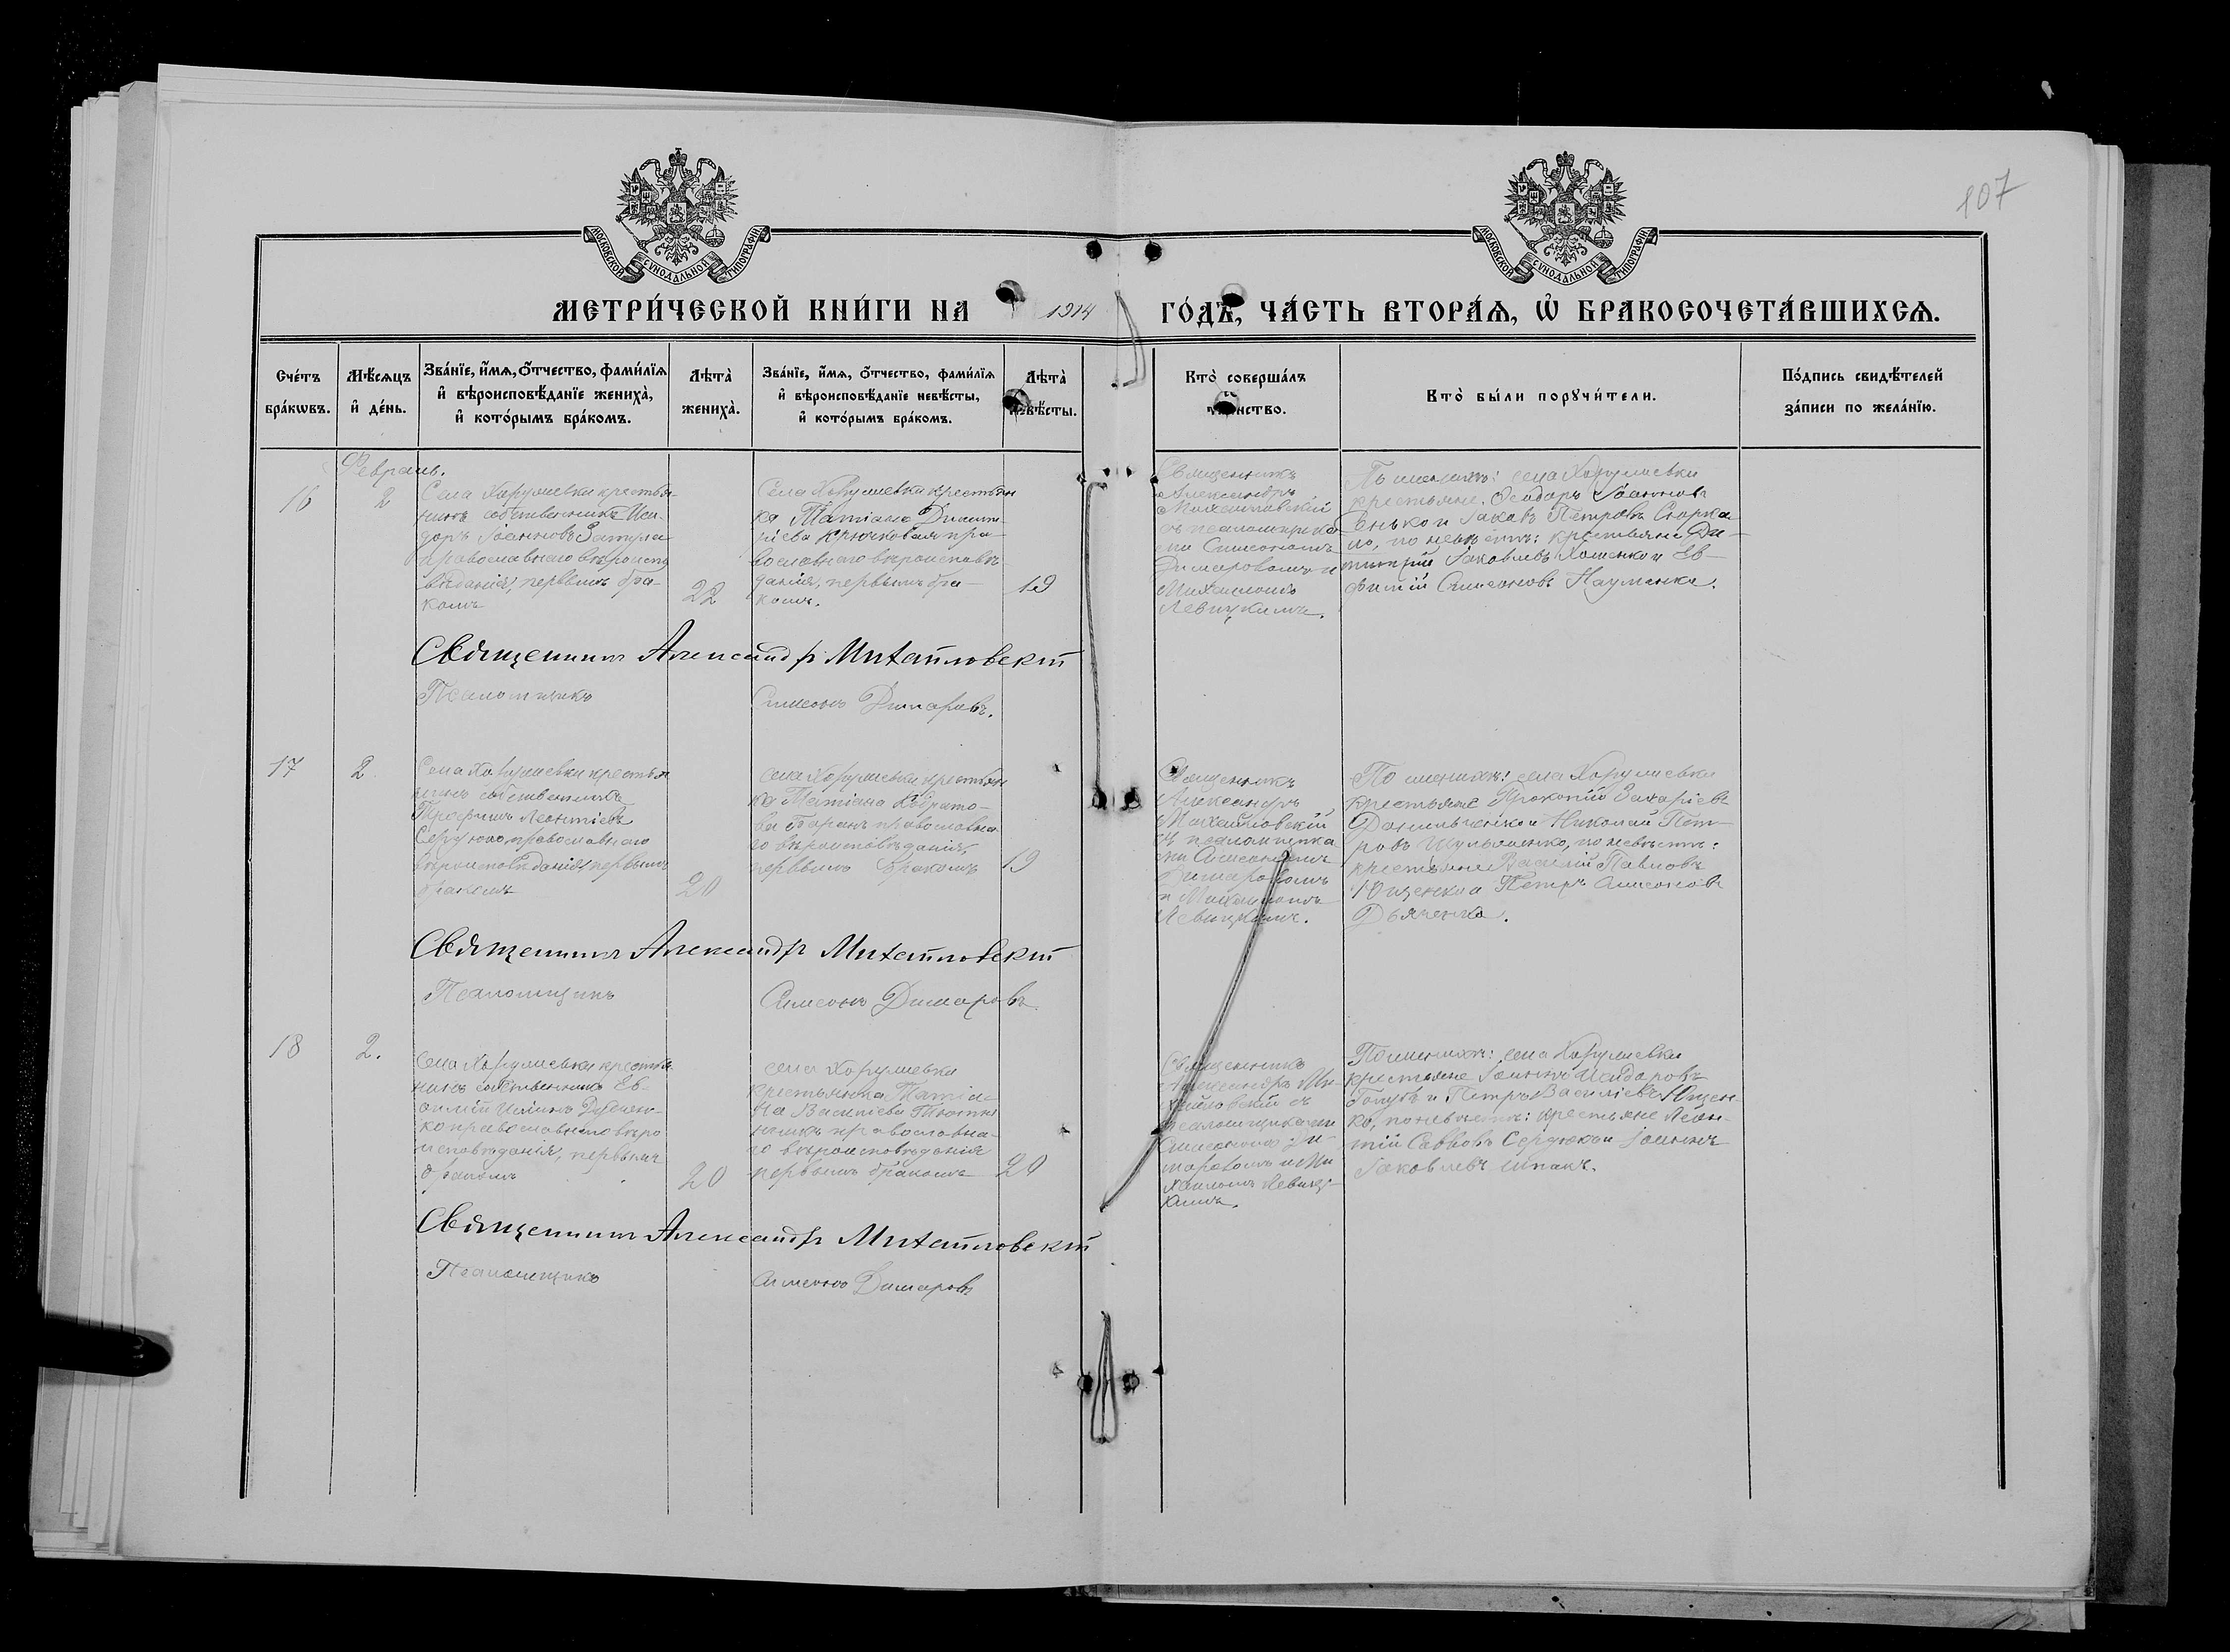 107
МОСКОВСКОЙ СѴНОДАЛЬНОЙ ТИПОГРАФІИ
МОСКОВСКОЙ СѴНОДАЛЬНОЙ ТИПОГРАФІИ
МЕТРИ́ЧЕСКОЙ КНИ́ГИ НА 1914 ГО́ДЪ, ЧА́СТЬ ВТОРА́Ѧ, Ѡ҆ БРАКОСОЧЕТА́ВШИХСѦ.
Сче́тъ
бра́кѡвъ.
Мѣ́сѧцъ
и҆ де́нь.
Зва́нїе, и҆́мѧ, ѻ҆́тчество, фами́лїѧ
и҆ вѣроисповѣ́данїе жениха̀,
и҆ кото́рымъ бра́комъ.
Лѣта̀
жениха̀.
Зва́нїе, и҆́мѧ, ѻ҆́тчество, фами́лїѧ
и҆ вѣроисповѣ́данїе невѣ́сты,
и҆ кото́рымъ бра́комъ.
Лѣта̀
невѣ́сты.
Кто̀ соверша́лъ
таинство.
Кто̀ бы́ли порꙋчи́тели.
По́дпись свидѣ́телей
за́писи по жела́нїю.
Февраль.
16
2
Села Хорушевки крестья-
нинъ собственникъ Иси-
доръ Іоанновъ
православнаго вѣроиспо
вѣданія, первымъ бра-
комъ
22
Села Хорушевки крестьян
ка Татіана Димит-
ріева Крючковая пра-
вославнаго вѣроисповѣ-
данія, первымъ бра-
комъ.
19
Священникъ
Александръ
Михайловскій
съ псаломщика
ми Симеономъ
Димаровымъ и
Михаиломъ
Левицкимъ.
По женихѣ: села Хорушевки
крестьяне Ѳеодоръ Іоанновъ
и Іаковъ Петровъ
по невѣстѣ: крестьяне Ди-
митрій Іаковлевъ Хоменко и Ев-
фимій Симеоновъ Науменко.
Священникъ Александръ Михайловскій
Псаломщикъ Симеонъ Димаровъ.
17
2
Села Хорушевки крестья
нинъ собственникъ
Трофимъ Леонтіевъ
Сердюкъ, православнаго
вѣроисповѣданія, первымъ
бракомъ
20
Села Хорушевки крестьян
ка Татіана Кондрато-
ва Таранъ православна
го вѣроисповѣданія,
первымъ бракомъ
19
Священникъ
Александръ
Михайловскій
съ псаломщика
ми Симеономъ
Димаровымъ
и Михаиломъ
Левицкимъ.
По женихѣ: села Хорушевки
крестьяне Прокопій Захаріевъ
Данильченко и Николай Пет-
ровъ Шульженко, по невѣстѣ:
крестьяне Василій Павловъ
Ющенко и Петръ Симеоновъ
Дьяченко.
Священникъ Александръ Михайловскій
Псаломщикъ Симеонъ Димаровъ
18
2.
Села Хорушевки крестья
нинъ собственникъ Ев-
ѳимій Иліинъ
ко православнаго вѣро
исповѣданія, первымъ
бракомъ
20
Села Хорушевки
крестьянка Татіа-
на Василіева
православна-
го вѣроисповѣданія
первымъ бракомъ
20
Священникъ
Александръ Ми-
хайловскій съ
псаломщиками
Симеономъ Ди-
маровымъ и Ми
хаиломъ Левиц-
кимъ.
По женихѣ: села Хорушевки
крестьяне Іоаннъ Исидоровъ
Голубъ и Петръ Василіевъ Ющен-
ко, по невѣстѣ: крестьяне Леон-
тій Саввовъ Сердюкъ и Іоаннъ
Іаковлевъ Шпакъ.
Священникъ Александръ Михайловскій
Псаломщикъ Симеонъ Димаровъ